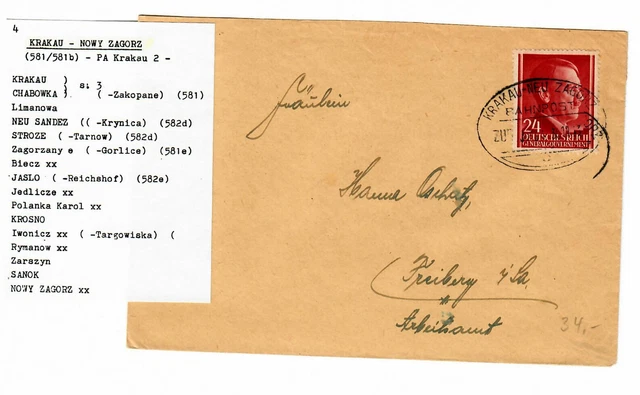 4
KRAKAU - NOWY ZAGORZ
(581/581b) - PA Krakau 2 -
KRAKAU )
s. 3
CHABOWKA ) ( -Zakopane) (581)
Limanowa
NEU SANDEZ (( -Krynica) (582d)
STROZE ( -Tarnow) (582d)
Zagorzany e ( -Gorlice) (581e)
Biecz xx
JASLO ( -Reichshof) (582e)
Jedlicze xx
Polanka Karol xx
KROSNO
Iwonicz xx ( -Targowiska) (
Rymanow xx
Zarszyn
SANOK
NOWY ZAGORZ xx
KRAKAU-NEU ZAGORZ
BAHNPOST
ZUG
24
DEUTSCHES REICH
GENERALGOUVERNEMENT
Fräulein
Hanna
Freiberg i/Sa.
Arbeitsamt
34.-